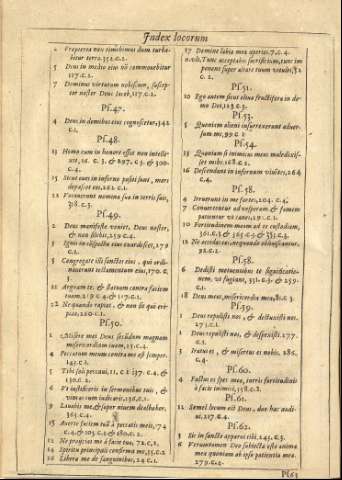 Index locorum
2 Propterea non timebimus dum turba-
bitur terra. 352. c. 2.
5 Deus in medio eius nõ commouebitur
117. c. 2.
7 Dominus virtutum nobiscum, suscep-
tor noster Deus Iacob, 117. c. 2.
Ps. 47.
4 Deus in domibus eius cognoscetur, 342
c. 1.
Ps. 48.
13 Homo cum in honore esset non intelle-
xit, 16. c. 3. & 297. c. 3. & 300.
c. 4.
15 Sicut oues in inferno positi sunt, mors
depascet eos, 262. c. 1.
12 Vocauerunt nomina sua in terris suis,
318. c. 3.
Ps. 49.
2 Deus manifeste veniet, Deus noster,
& non silebit, 259. c. 4.
3 Ignis in conspectu eius exardescet, 279
c. 1.
5 Congregate illi sanctos eius, qui ordi-
nauerunt testamentum eius, 170. c.
3
21 Arguam te, & statuam contra faciem
tuam, 219. c. 4. & 117. c. 1.
22 Nequando rapiat, & non sit qui eri-
piat, 220. c. 1.
Ps. 50.
1 Miserere mei Deus secundum magnam
misericordiam tuam, 15. c. 2.
4 Peccatum meum contra me est semper.
145. c. 1.
5 Tibi soli peccaui, 11. c. 1. & 37. c. 4. &
130. c. 2.
6 Vt iustificeris in sermonibus tuis, &
vincas cum iudicaris, 136. c. 1.
9 Lauabis me, & super niuem dealbabor,
361. c. 4.
11 Auerte faciem tuã à peccatis meis, 74
c. 4. & 105. c. 2. & 180. c. 2.
12 Ne proijcias me à facie tua, 72. c. 2.
14 Spiritu principali confirma me, 55. c. 2.
16 Libera me de sanguinibus, 24. c. 1.
17 Domine labia mea aperies, 7. c. 4.
Tunc acceptabis sacrificium, tunc im
ponent super altare tuum vitulos, 81
c. 2.
Ps. 51.
10 Ego autem sicut oliua fructifera in do-
mo Dei, 125. c. 3.
Ps. 53.
5 Quoniam alieni insurrexerunt aduer-
sum me, 99. c. 2
Ps. 54.
13 Quoniam si inimicus meus maledixis-
set mihi. 168. c. 2.
16 Descendant in infernum viuẽtes, 264
c. 4.
Ps. 58.
4 Irruerunt in me fortes, 204. c. 4.
7 Conuertentur ad vesperam & famem
patientur vt canes, 191. c. 1.
10 Fortitudinem meam ad te custodiam,
361. c. 3. & 365. c. 3. & 353. c. 3.
12 Ne occidas eos, nequando obliuiscantur,
92. c. 1.
Ps. 58.
6 Dedisti metuentibus te significatio-
nem, vt fugiant, 331. c. 3. & 259.
c. 1.
18 Deus meus, misericordia mea, 81. c. 3.
Ps. 59.
1 Deus repulisti nos, & destruxisti nos.
271. c. 1.
1 Deus repulisti nos, & despexisti. 277.
c. 1.
3 iratus es, & misertus es nobis, 286.
c. 4.
Ps. 60.
4 Factus es spes mea, turris fortitudinis
à facie inimici, 158. c. 2.
Ps. 61.
12 Semel locutus est Deus, duo hæc audi-
ui, 217. c. 4.
Ps. 62.
3 Sic in sancto apparui tibi. 145. c. 3.
2 anima
mea quoniam ab ipso patientia mea
279. c. 2.
Ps. 63